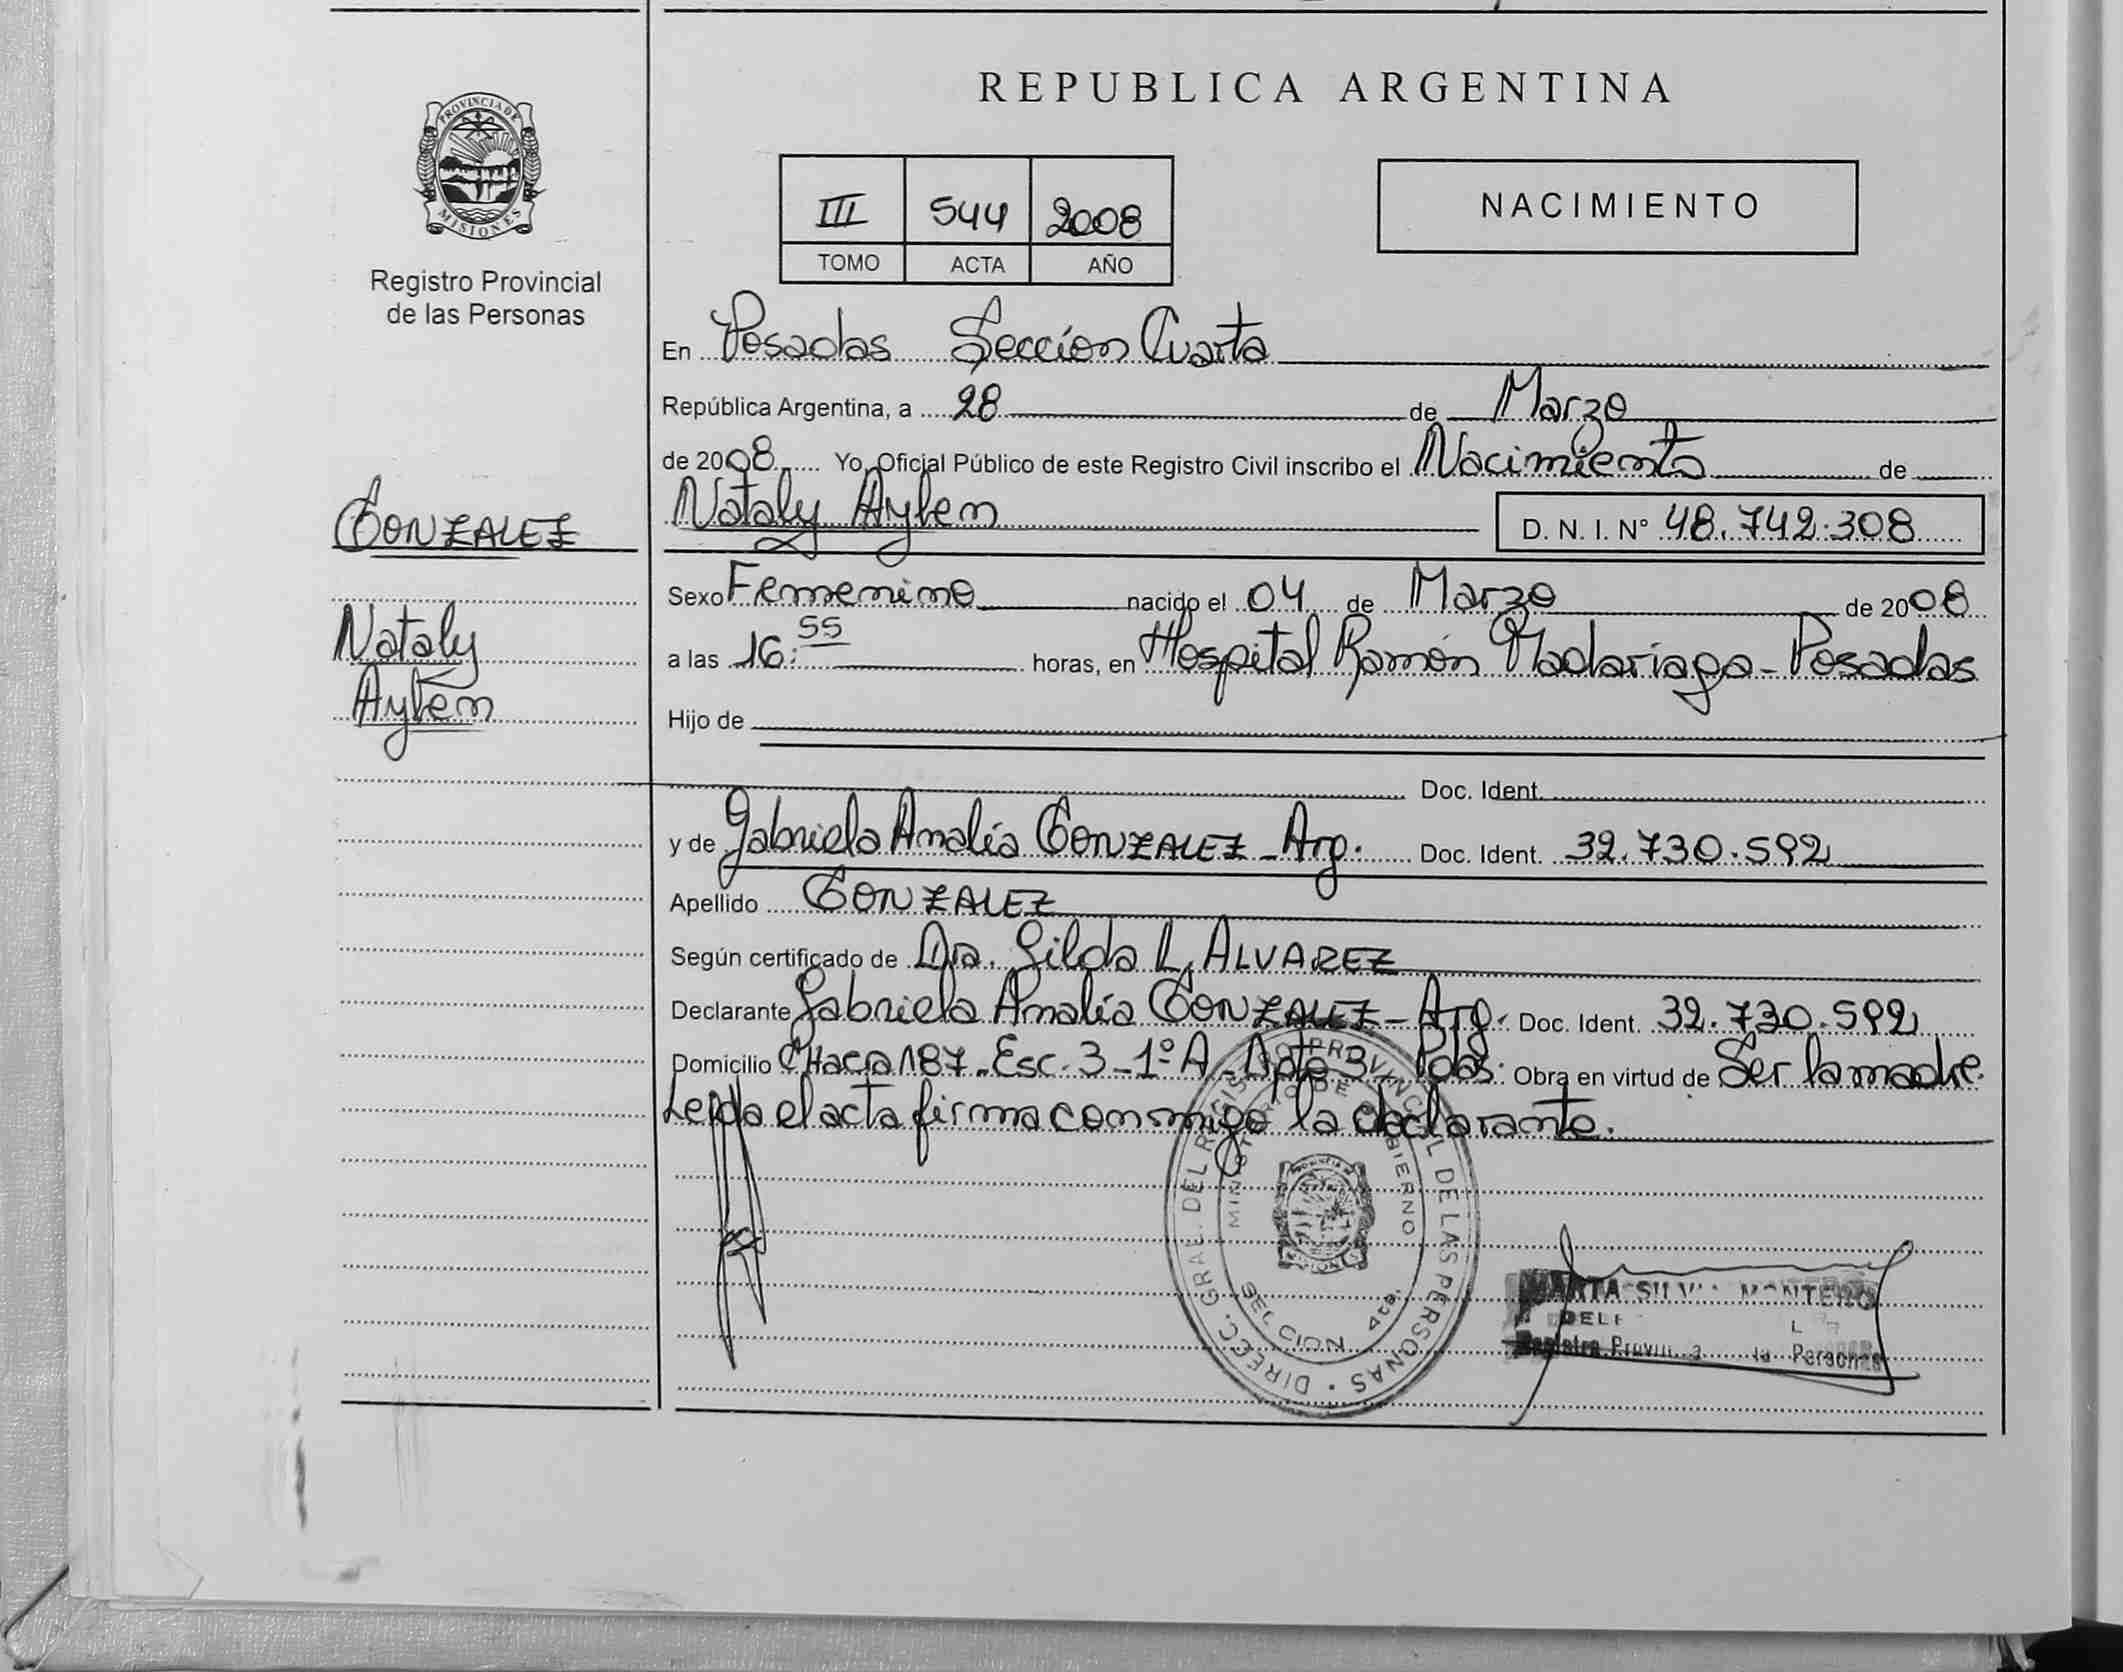 REPUBLICA ARGENTINA
PROVINCIA DE
MISIONES
Registro Provincial
de las Personas
III 544 2008
TOMO ACTA AÑO
NACIMIENTO
En Posadas Sección Cuarta
República Argentina, a 28 de Marzo
de 2008 Yo, Oficial Público de este Registro Civil inscribo el Nacimiento de
GONZALEZ
Nataly Aylen D. N. I. N° 48.742.308
Sexo Femenino nacido el 04 de Marzo de 2008
Nataly
a las 16:55 horas, en Hospital Ramón Madariaga - Posadas
Aylen
Hijo de
Doc. Ident.
y de Gabriela Amalia GONZALEZ - Arg. Doc. Ident. 32.730.592
Apellido GONZALEZ
Según certificado de Dra. Gilda L. ALVAREZ
Declarante Gabriela Amalia GONZALEZ - Arg. Doc. Ident. 32.730.592
Domicilio CHacra 187 - Esc. 3 - 1º A - Dpto 3, Pdas. Obra en virtud de Ser la madre.
Leída el acta firma conmigo la declarante.
DIREC. GRAL. DEL REGISTRO PROVINCIAL DE LAS PERSONAS
MINISTERIO DE GOBIERNO
SECCION 4ta.
MARTA MONTERO
Registro Personas